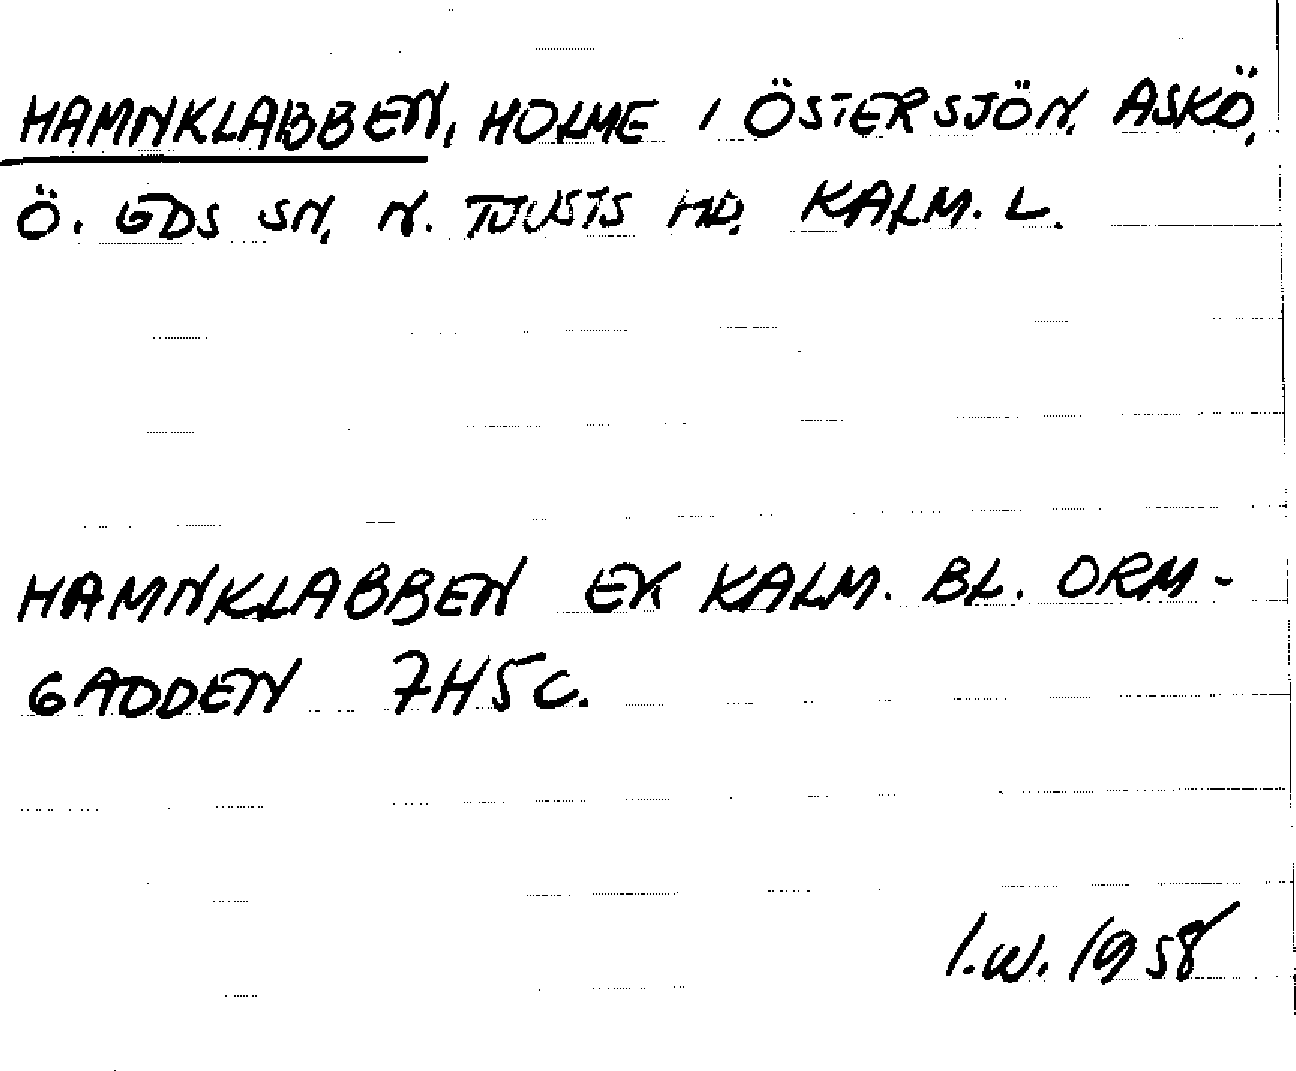 HAMNKLABBEN, HOLME I ÖSTERSJÖN, ASKÖ,
Ö. GDS SN, N. TJUSTS HD, KALM. L.
HAMNKLABBEN EK KALM. BL. ORM-
GADDEN 7H5C.
I.W. 1958